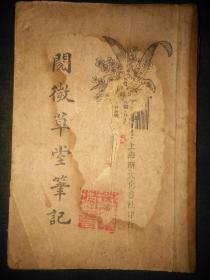 閱微草堂筆記
上海新文化書社印行